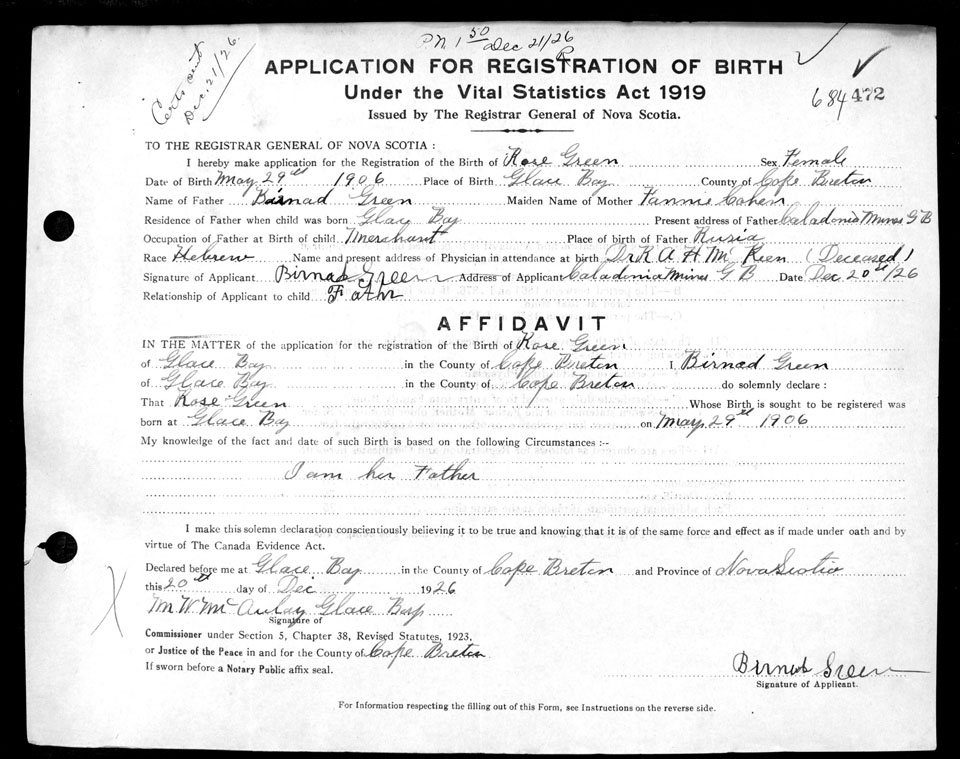 P.N. 1 50 Dec 21/26
Certs sent
Dec. 21/26.
APPLICATION FOR REGISTRATION OF BIRTH
Under the Vital Statistics Act 1919
684 472
Issued by The Registrar General of Nova Scotia.
TO THE REGISTRAR GENERAL OF NOVA SCOTIA :
I hereby make application for the Registration of the Birth of Rose Green Sex Female
Date of Birth May 29th 1906 Place of Birth Glace Bay County of Cape Breton
Name of Father Birnad Green Maiden Name of Mother Fannie Cohen
Residence of Father when child was born Glace Bay Present address of Father Caladonia Mines G B
Occupation of Father at Birth of child Merchant Place of birth of Father Rusia
Race Hebrew Name and present address of Physician in attendance at birth Dr K A H McKeen (Deceased)
Signature of Applicant Birnad Green Address of Applicant Caladonia Mines G B Date Dec 20th/26
Relationship of Applicant to child Fathr
AFFIDAVIT
IN THE MATTER of the application for the registration of the Birth of Rose Green
of Glace Bay in the County of Cape Breton I, Birnad Green
of Glace Bay in the County of Cape Breton do solemnly declare :
That Rose Green Whose Birth is sought to be registered was
born at Glace Bay on May 29th 1906
My knowledge of the fact and date of such Birth is based on the following Circumstances :-
I am her Father
I make this solemn declaration conscientiously believing it to be true and knowing that it is of the same force and effect as if made under oath and by
virtue of The Canada Evidence Act.
Declared before me at Glace Bay in the County of Cape Breton and Province of Nova Scotia
this 20th day of Dec 1926
M W McAulay Glace Bay
Signature of
Commissioner under Section 5, Chapter 38, Revised Statutes, 1923,
or Justice of the Peace in and for the County of Cape Breton
If sworn before a Notary Public affix seal.
Birnad Green
Signature of Applicant.
For Information respecting the filling out of this Form, see Instructions on the reverse side.